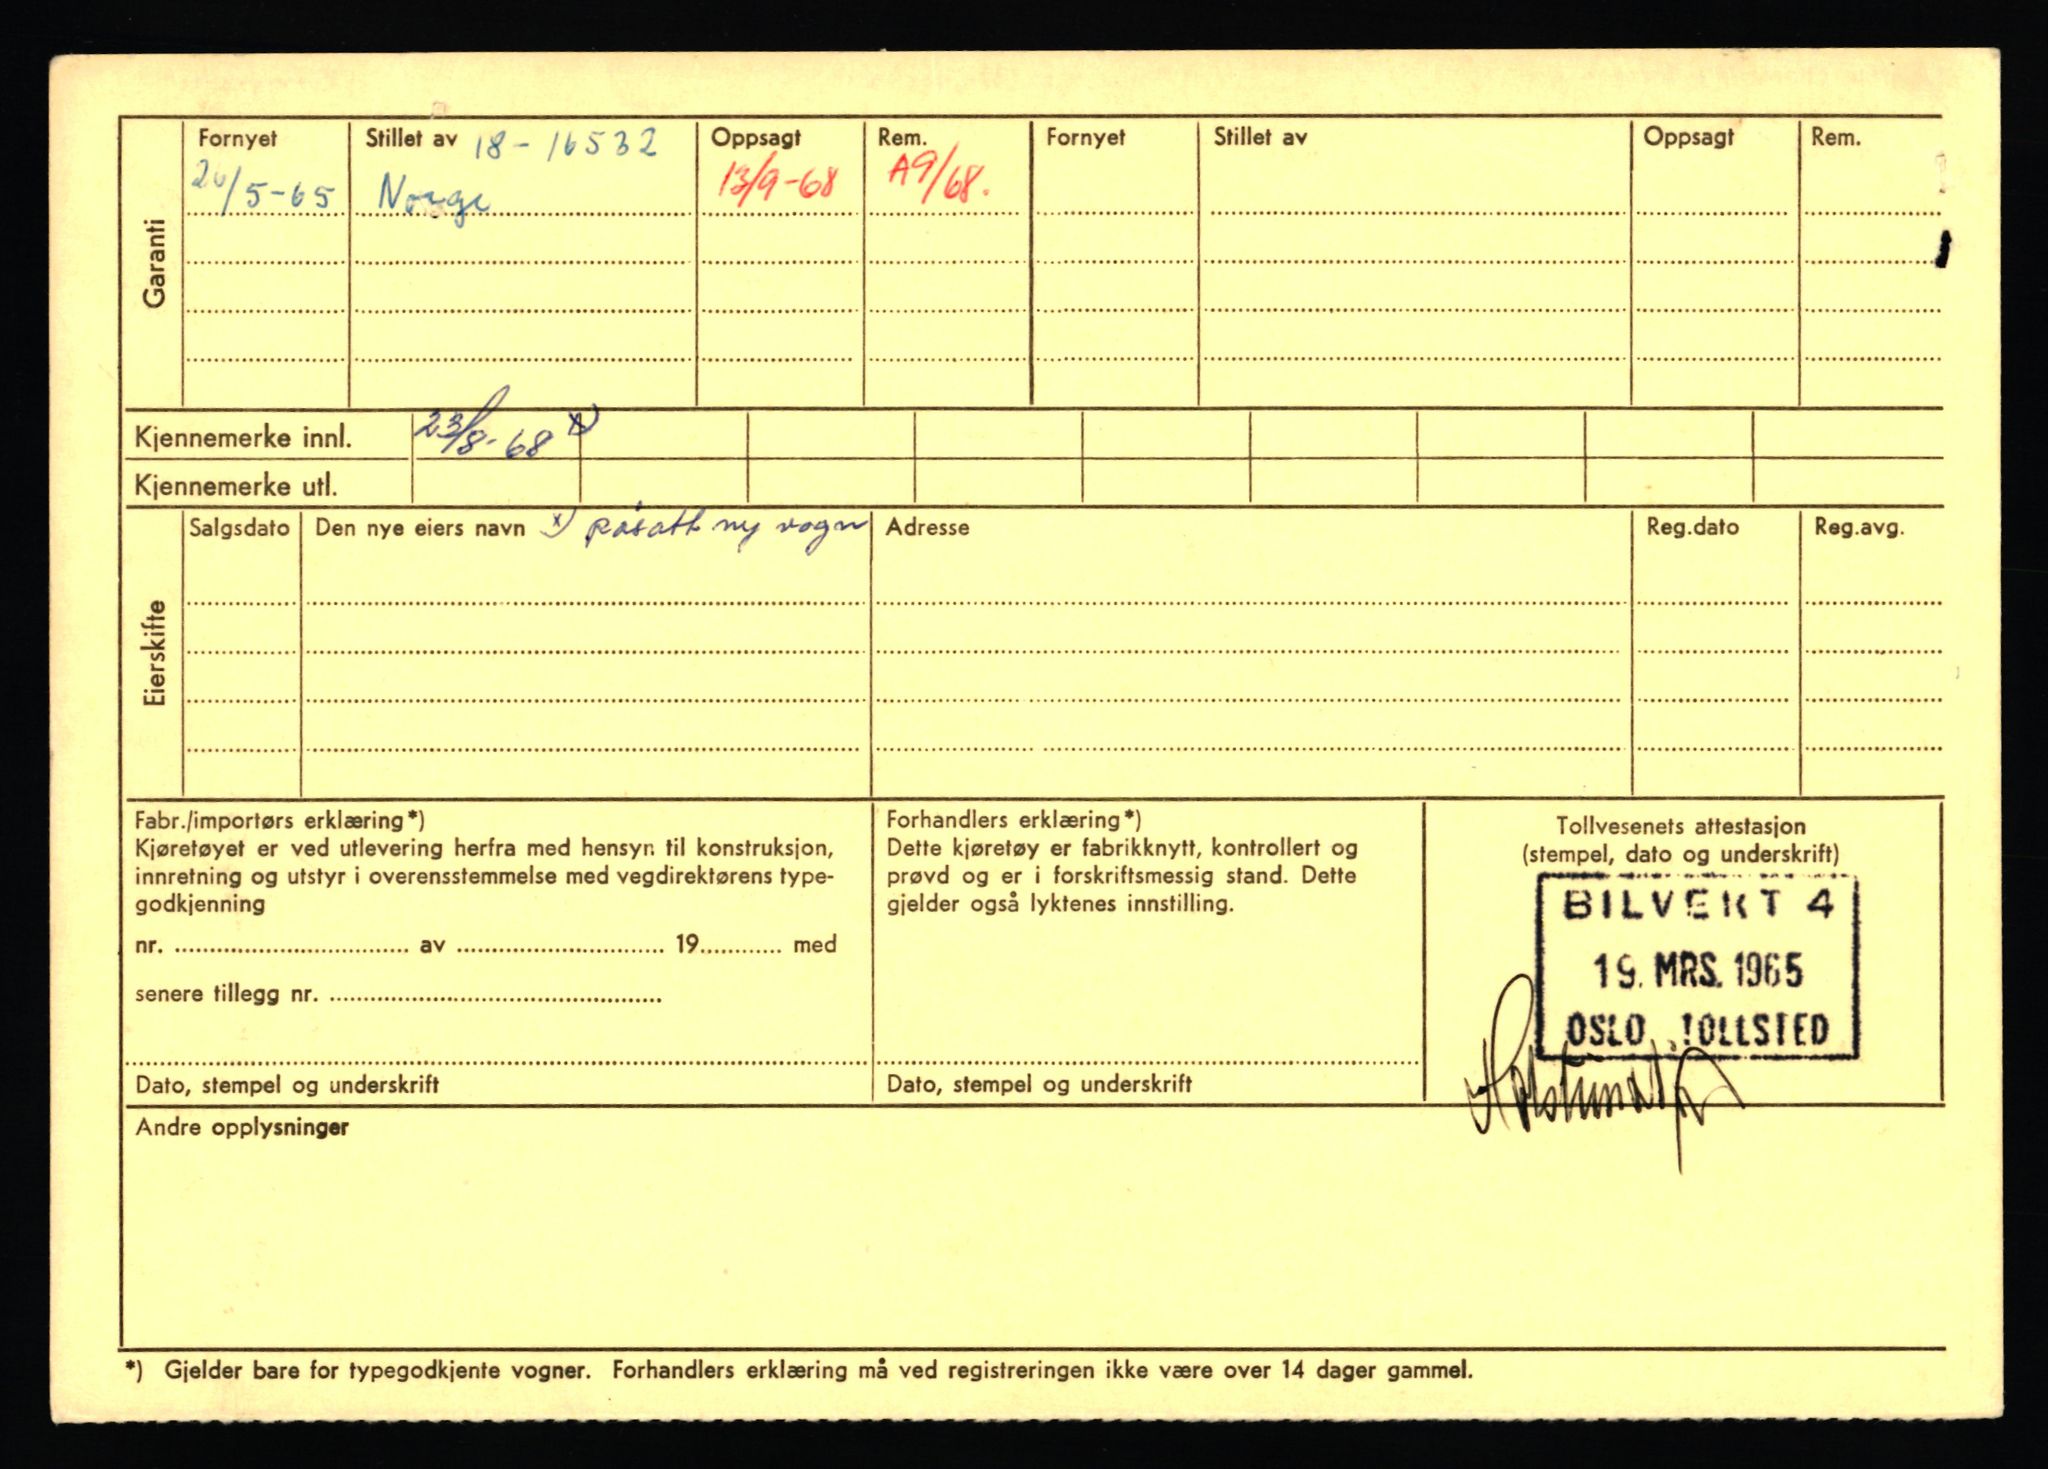 Garanti
Fornyet Stillet av 18-16532 Oppsagt Rem. Fornyet Stillet av Oppsagt Rem.
26/5-65 Norge 13/9-68 A9/68.
Kjennemerke innl. 23/8-68 x)
Kjennemerke utl.
Eierskifte
Salgsdato Den nye eiers navn x) påsatt ny vogn Adresse Reg.dato Reg.avg.
Fabr./importørs erklæring*)
Kjøretøyet er ved utlevering herfra med hensyn til konstruksjon,
innretning og utstyr i overensstemmelse med vegdirektørens type-
godkjenning
nr. .......... av .......... 19.......... med
senere tillegg nr. ..........
Dato, stempel og underskrift
Forhandlers erklæring*)
Dette kjøretøy er fabrikknytt, kontrollert og
prøvd og er i forskriftsmessig stand. Dette
gjelder også lyktenes innstilling.
Dato, stempel og underskrift
Tollvesenets attestasjon
(stempel, dato og underskrift)
BILVEKT 4
19. MRS. 1965
OSLO TOLLSTED
Andre opplysninger
*) Gjelder bare for typegodkjente vogner. Forhandlers erklæring må ved registreringen ikke være over 14 dager gammel.